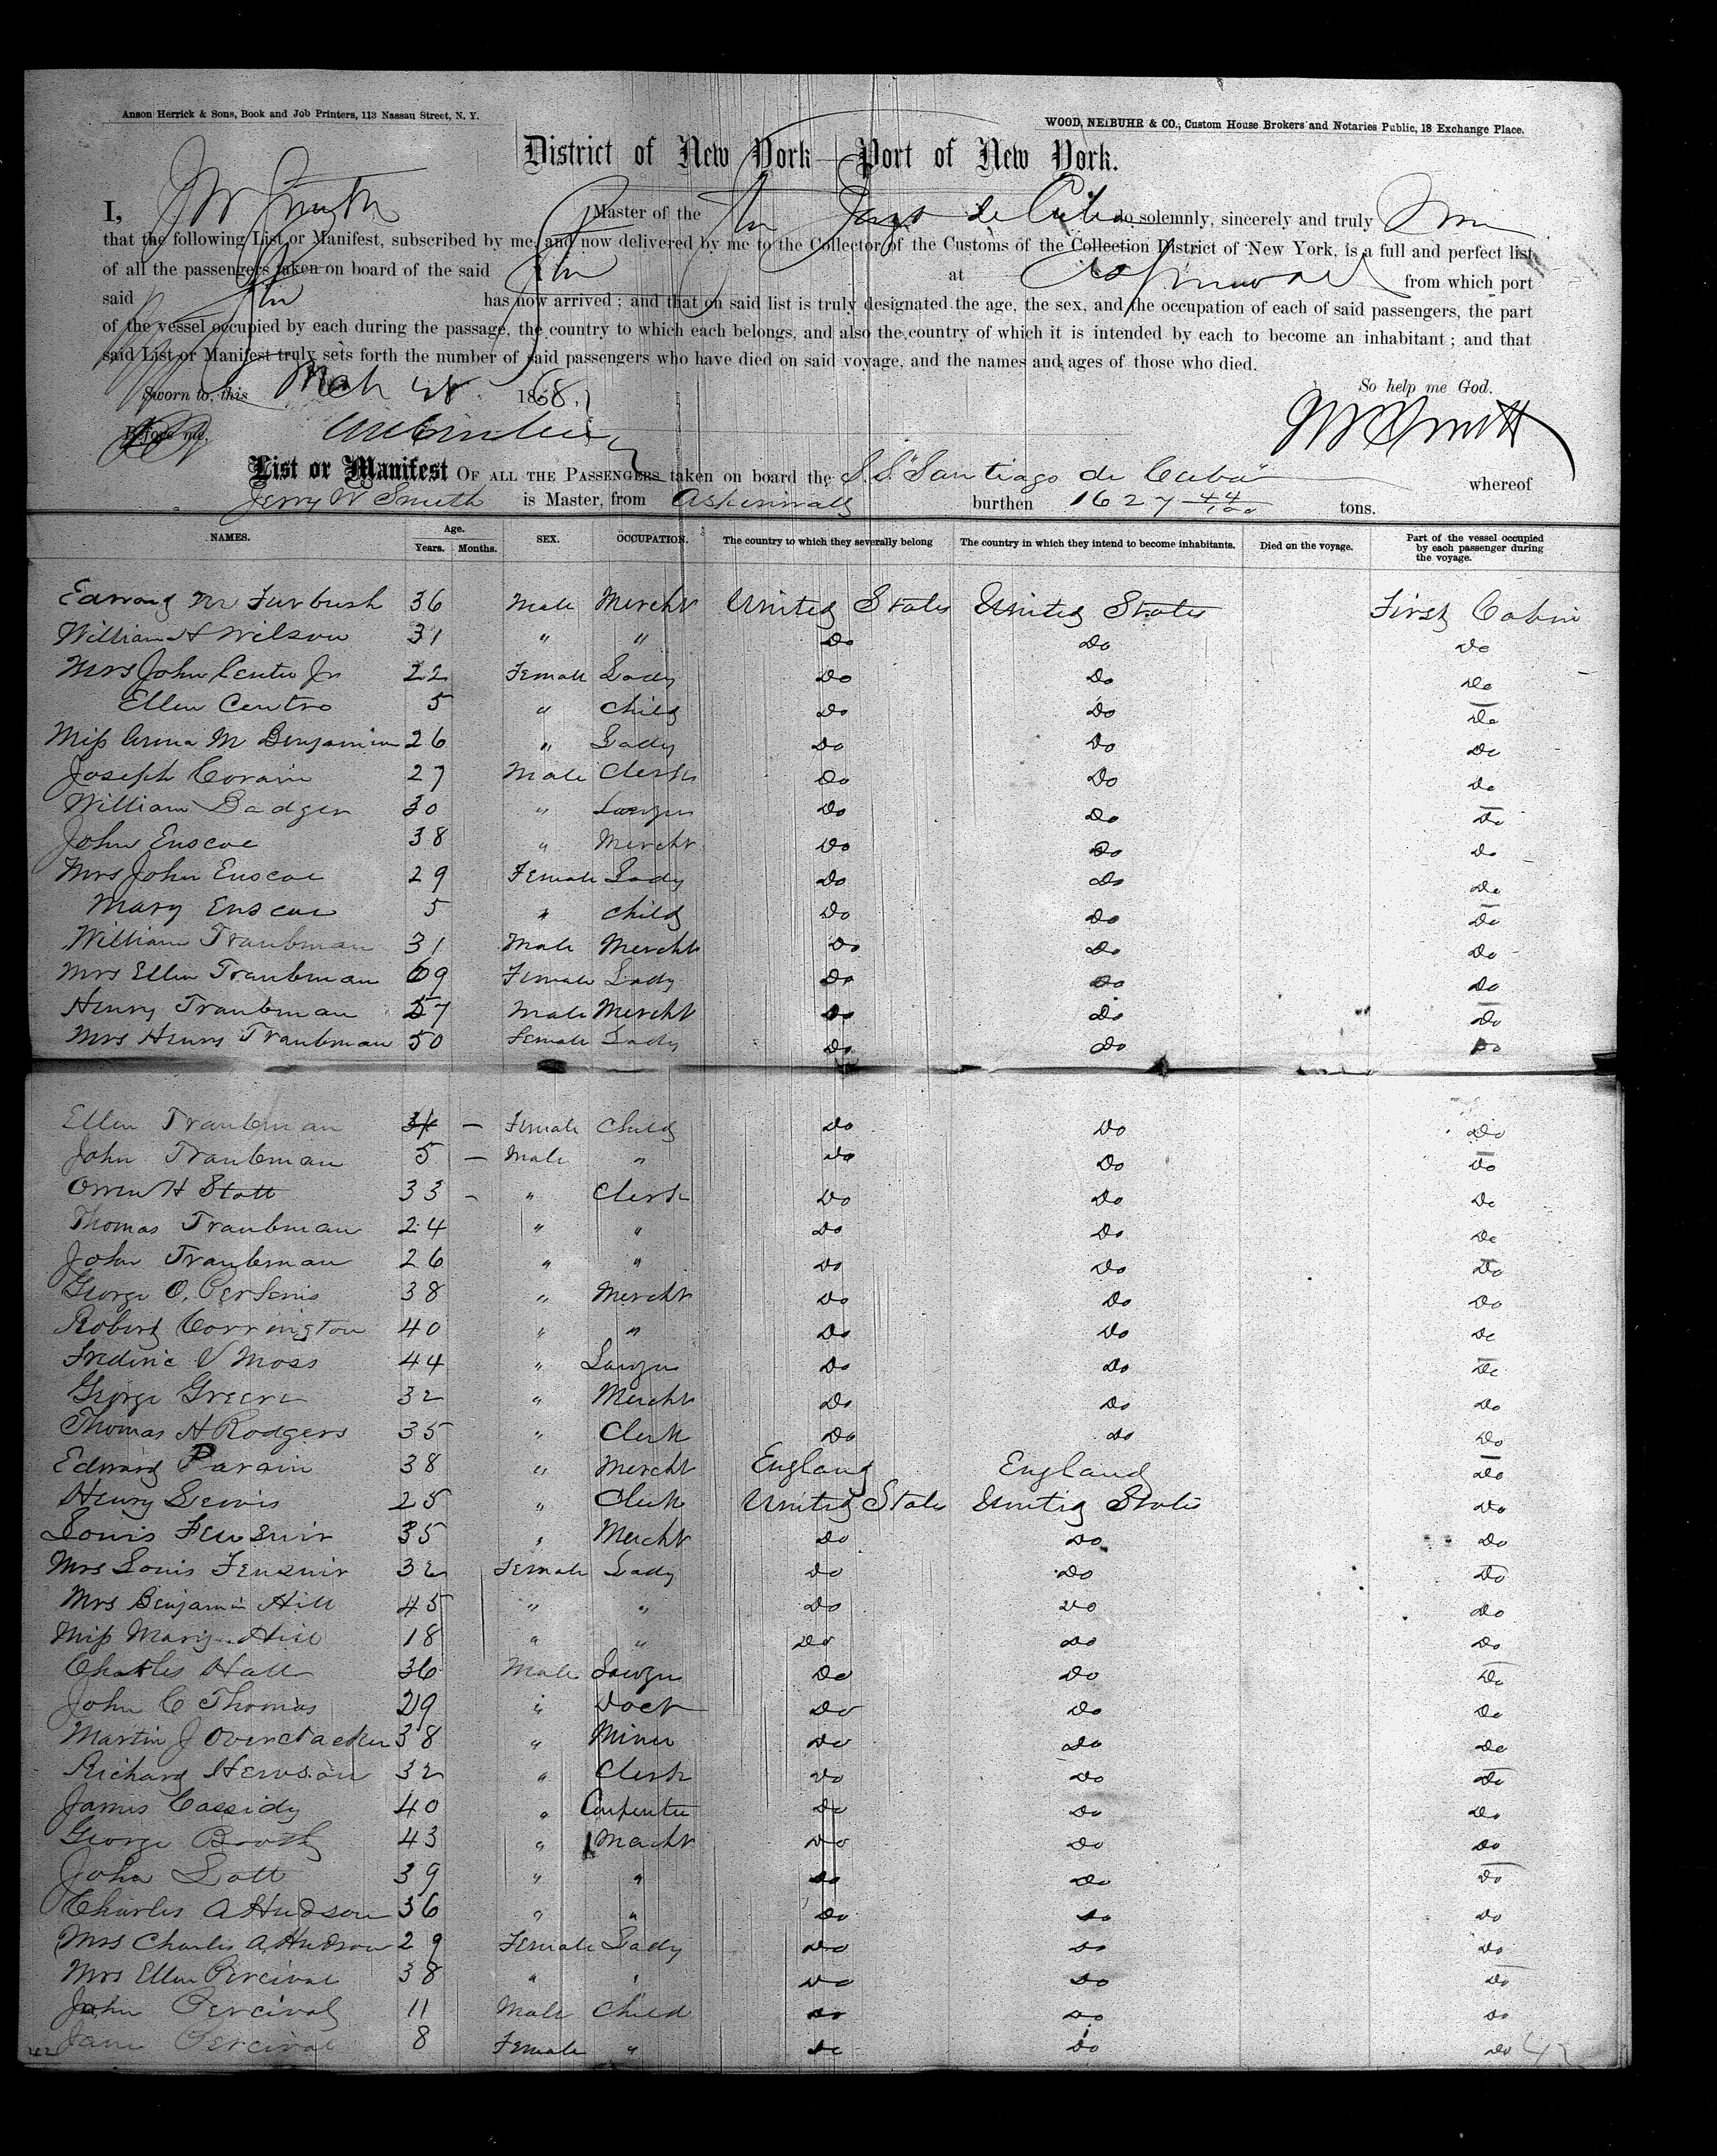 Anson Herrick & Sons, Book and Job Printers, 113 Nassau Street, N. Y.
WOOD, NEIBUHR & CO., Custom House Brokers and Notaries Public, 18 Exchange Place.
District of New York Port of New York.
I, J W Smith Master of the Str Jago de Cuba do solemnly, sincerely and truly
that the following List or Manifest, subscribed by me, and now delivered by me to the Collector of the Customs of the Collection District of New York, is a full and perfect list
of all the passengers taken on board of the said Str at Aspinwall from which port
said Str has now arrived; and that on said list is truly designated the age, the sex, and the occupation of each of said passengers, the part
of the vessel occupied by each during the passage, the country to which each belongs, and also the country of which it is intended by each to become an inhabitant; and that
said List or Manifest truly sets forth the number of said passengers who have died on said voyage, and the names and ages of those who died.
So help me God.
Sworn to, this Mch 28 1868.
J W Smith
Before me,
List or Manifest OF ALL THE PASSENGERS taken on board the S.S. "Santiago de Cuba" whereof
Jerry W Smith is Master, from Aspinwall burthen 1627 44/100 tons.
NAMES. Age. Years. Months. SEX. OCCUPATION. The country to which they severally belong The country in which they intend to become inhabitants. Died on the voyage. Part of the vessel occupied by each passenger during the voyage.
Edward M Furbush 36 Male Mercht United States United States First Cabin
William H Wilson 31 " " Do Do Do
Mrs John Center Jr 22 Female Lady Do Do Do
Ellen Centro 5 " Child Do Do Do
Miss Anna M Benjamin 26 " Lady Do Do Do
Joseph Corain 27 Male Clerk Do Do Do
William Badger 30 " Lawyer Do Do Do
John Enscoe 38 " Mercht Do Do Do
Mrs John Enscoe 29 Female Lady Do Do Do
Mary Enscoe 5 " Child Do Do Do
William Traubman 31 Male Mercht Do Do Do
Mrs Ellen Traubman 69 Female Lady Do Do Do
Henry Traubman 57 Male Mercht Do Do Do
Mrs Henry Traubman 50 Female Lady Do Do Do
Ellen Traubman Female Child Do Do Do
John Traubman 5 — Male " Do Do Do
Orren H Stott 33 - " Clerk Do Do Do
Thomas Traubman 24 " " Do Do Do
John Traubman 26 " " Do Do Do
George O. Perkins 38 " Mercht Do Do Do
Robert Corrington 40 " " Do Do Do
Frederic V Moss 44 " Lawyer Do Do Do
George Green 32 " Mercht Do Do Do
Thomas H Rodgers 35 " Clerk Do Do Do
Edward Parain 38 " Mercht England England Do
Henry Lewis 25 " Clerk United States United States Do
Louis 35 " Mercht Do Do Do
Mrs Louis 32 Female Lady Do Do Do
Mrs Benjamin Hill 45 " " Do Do Do
Miss Mary Hill 18 " " Do Do Do
Charles Hall 36 Male Lawyer Do Do Do
John C Thomas 29 " Doct Do Do Do
Martin J Overacker 38 " Miner Do Do Do
Richard Hewson 32 " Clerk Do Do Do
James Cassidy 40 " Carpenter Do Do Do
George Booth 43 " Mercht Do Do Do
John Lott 39 " " Do Do Do
Charles A Hudson 36 " " Do Do Do
Mrs Charles A Hudson 29 Female Lady Do Do Do
Mrs Ellen Percival 38 " " Do Do Do
John Percival 11 Male Child Do Do Do
Jane Percival 8 Female " Do Do Do
42 42